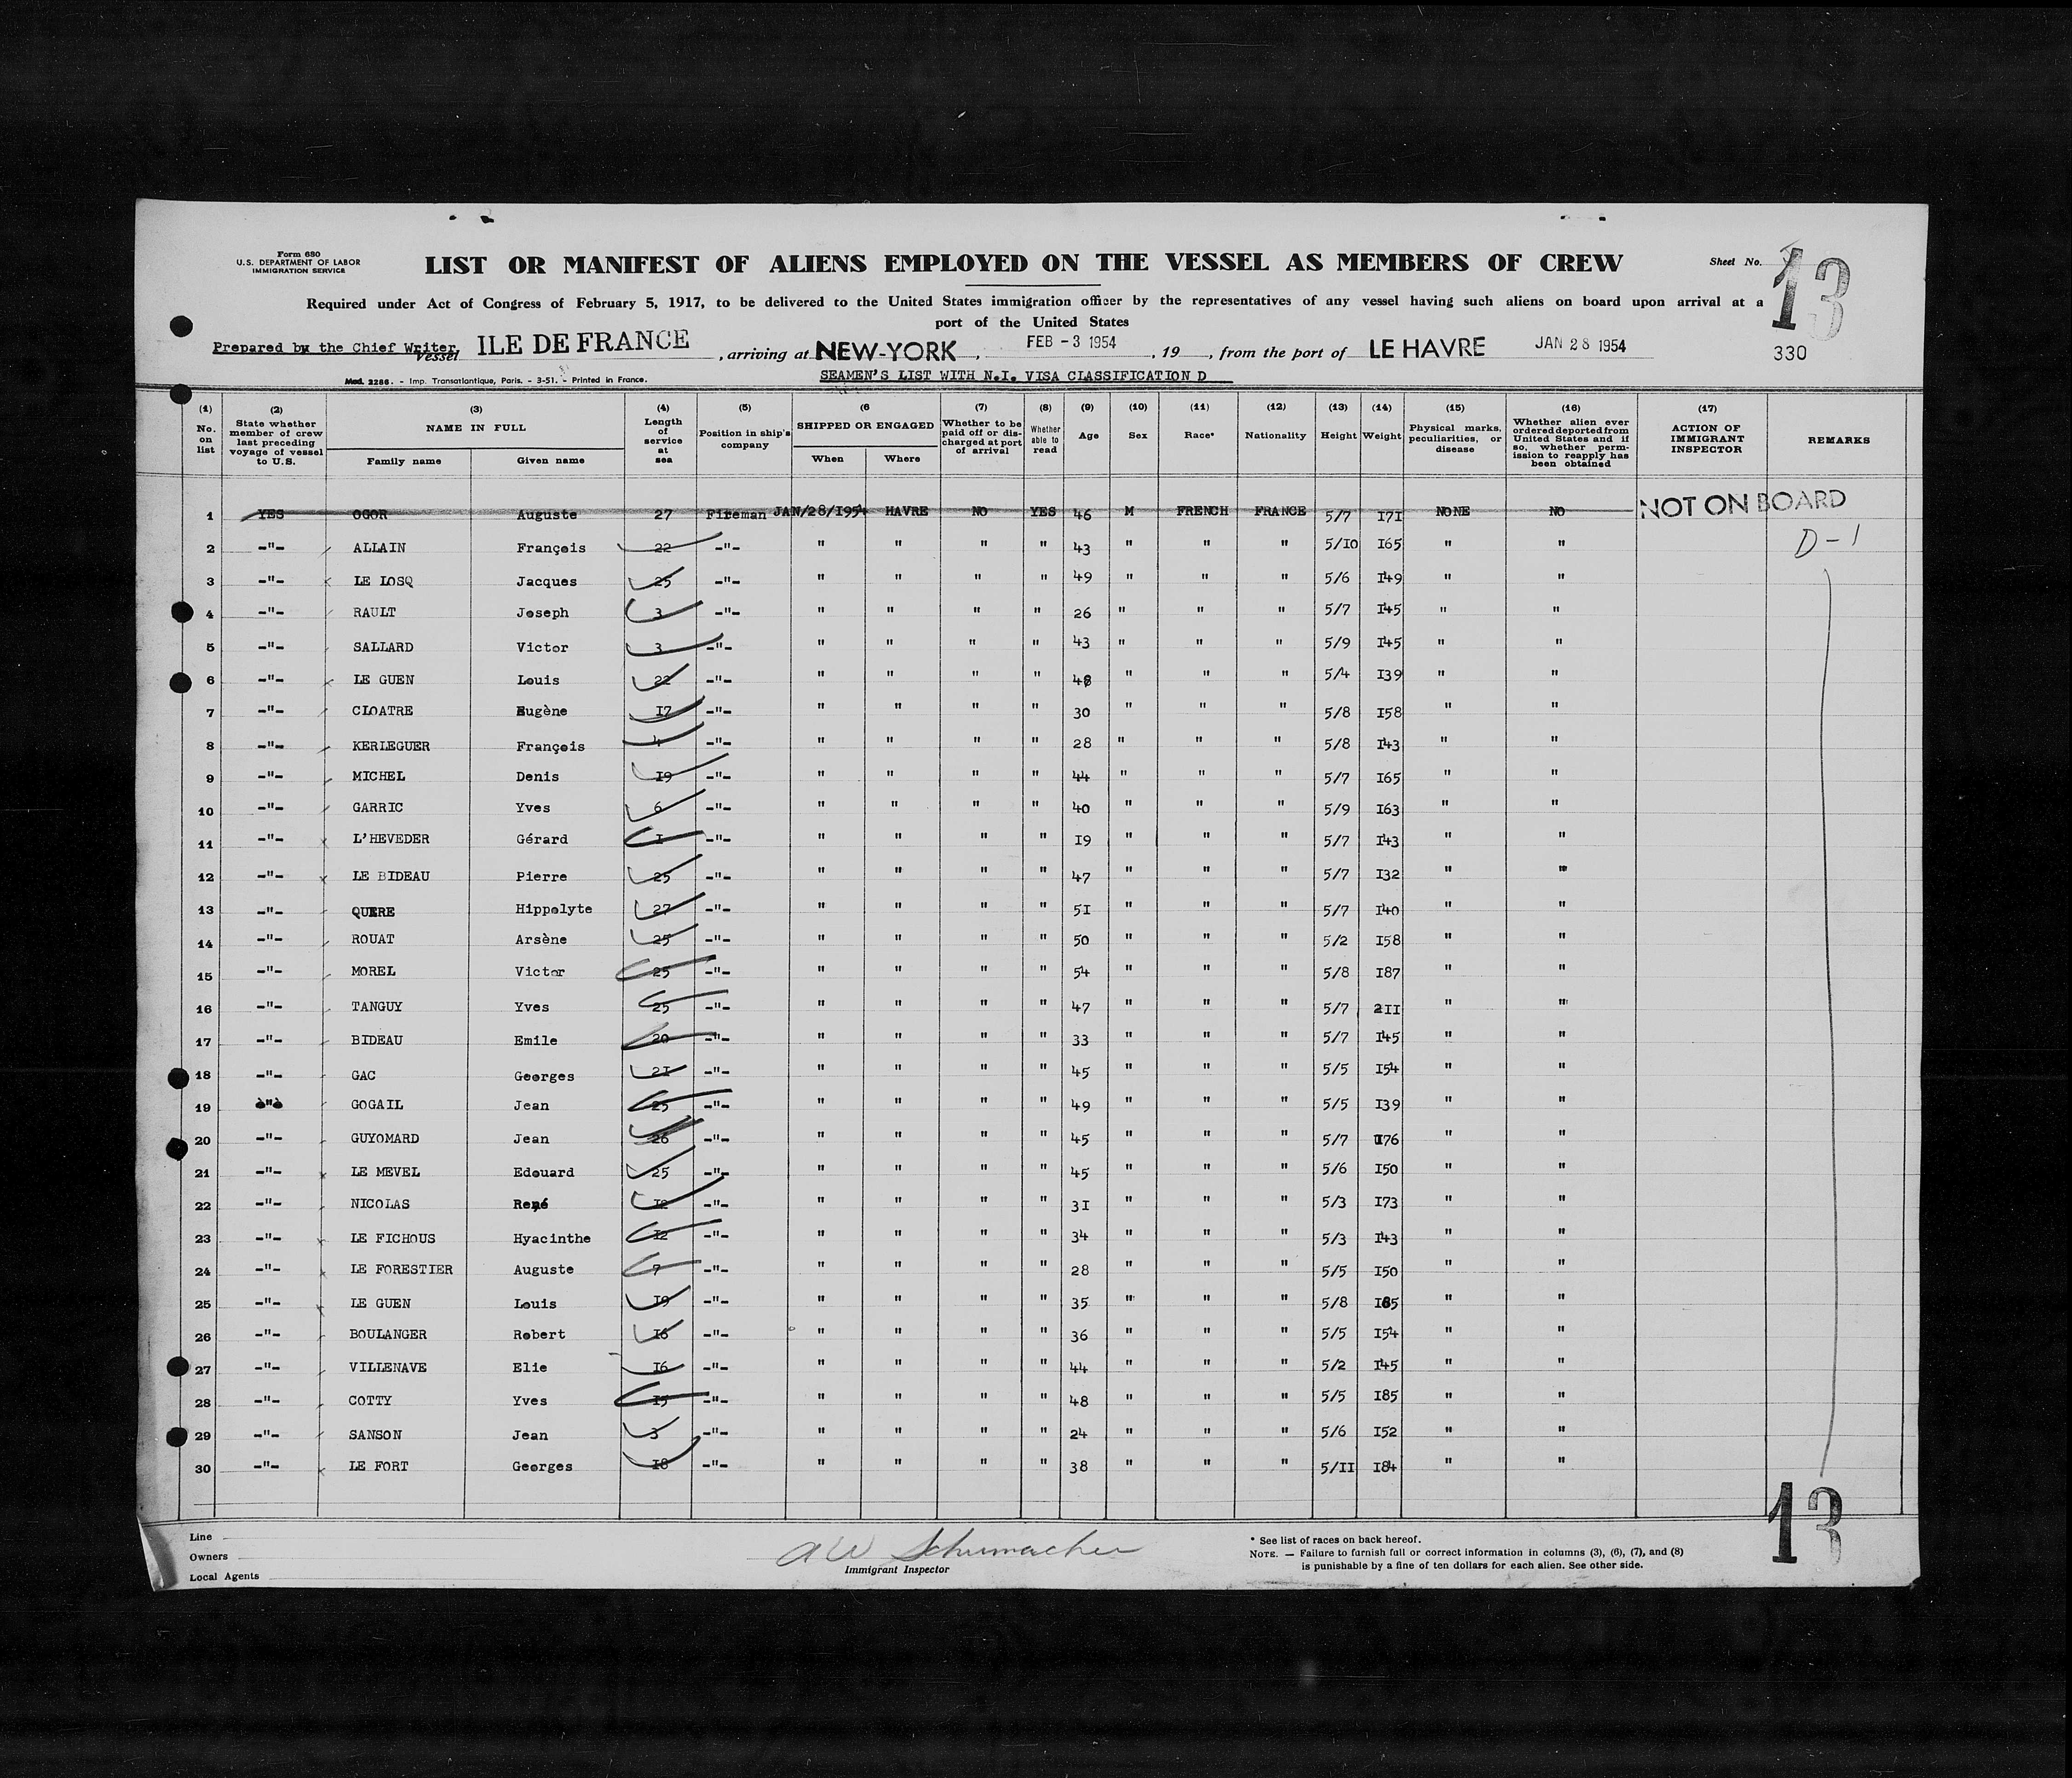 Form 680
U.S. DEPARTMENT OF LABOR
IMMIGRATION SERVICE
LIST OR MANIFEST OF ALIENS EMPLOYED ON THE VESSEL AS MEMBERS OF CREW
Sheet No. 13
Required under Act of Congress of February 5, 1917, to be delivered to the United States immigration officer by the representatives of any vessel having such aliens on board upon arrival at a
port of the United States
Prepared by the Chief Writer
Vessel ILE DE FRANCE , arriving at NEW-YORK , FEB - 3 1954 , 19 , from the port of LE HAVRE JAN 28 1954 330
Mod. 2286. - Imp. Transatlantique, Paris. - 3-51. - Printed in France.
SEAMEN'S LIST WITH N.I. VISA CLASSIFICATION D
(1) No. on list (2) State whether member of crew last preceding voyage of vessel to U.S. (3) NAME IN FULL Family name Given name (4) Length of service at sea (5) Position in ship's company (6 SHIPPED OR ENGAGED When Where (7) Whether to be paid off or discharged at port of arrival (8) Whether able to read (9) Age (10) Sex (11) Race* (12) Nationality (13) Height (14) Weight (15) Physical marks, peculiarities, or disease (16) Whether alien ever ordered deported from United States and if so, whether permission to reapply has been obtained (17) ACTION OF IMMIGRANT INSPECTOR REMARKS
1 YES OGOR Auguste 27 Fireman JAN/28/1954 HAVRE NO YES 46 M FRENCH FRANCE 5/7 171 NONE NO NOT ON BOARD
2 -"- ALLAIN François 22 -"- " " " " 43 " " " 5/10 165 " " D-1
3 -"- LE LOSQ Jacques 25 -"- " " " " 49 " " " 5/6 149 " "
4 -"- RAULT Joseph 3 -"- " " " " 26 " " " 5/7 145 " "
5 -"- SALLARD Victor 3 -"- " " " " 43 " " " 5/9 145 " "
6 -"- LE GUEN Louis 22 -"- " " " " 48 " " " 5/4 139 " "
7 -"- CLOATRE Eugène 17 -"- " " " " 30 " " " 5/8 158 " "
8 -"- KERLEGUER François 4 -"- " " " " 28 " " " 5/8 143 " "
9 -"- MICHEL Denis 19 -"- " " " " 44 " " " 5/7 165 " "
10 -"- GARRIC Yves 6 -"- " " " " 40 " " " 5/9 163 " "
11 -"- L'HEVEDER Gérard 1 -"- " " " " 19 " " " 5/7 143 " "
12 -"- LE BIDEAU Pierre 25 -"- " " " " 47 " " " 5/7 132 " "
13 -"- QUERE Hippolyte 27 -"- " " " " 51 " " " 5/7 140 " "
14 -"- ROUAT Arsène 25 -"- " " " " 50 " " " 5/2 158 " "
15 -"- MOREL Victor 25 -"- " " " " 54 " " " 5/8 187 " "
16 -"- TANGUY Yves 25 -"- " " " " 47 " " " 5/7 211 " "
17 -"- BIDEAU Emile 20 -"- " " " " 33 " " " 5/7 145 " "
18 -"- GAC Georges 21 -"- " " " " 45 " " " 5/5 154 " "
19 -"- GOGAIL Jean 25 -"- " " " " 49 " " " 5/5 139 " "
20 -"- GUYOMARD Jean 26 -"- " " " " 45 " " " 5/7 176 " "
21 -"- LE MEVEL Edouard 25 -"- " " " " 45 " " " 5/6 150 " "
22 -"- NICOLAS René 12 -"- " " " " 31 " " " 5/3 173 " "
23 -"- LE FICHOUS Hyacinthe 12 -"- " " " " 34 " " " 5/3 143 " "
24 -"- LE FORESTIER Auguste 7 -"- " " " " 28 " " " 5/5 150 " "
25 -"- LE GUEN Louis 19 -"- " " " " 35 " " " 5/8 185 " "
26 -"- BOULANGER Robert 16 -"- " " " " 36 " " " 5/5 154 " "
27 -"- VILLENAVE Elie 16 -"- " " " " 44 " " " 5/2 145 " "
28 -"- COTTY Yves 15 -"- " " " " 48 " " " 5/5 185 " "
29 -"- SANSON Jean 3 -"- " " " " 24 " " " 5/6 152 " "
30 -"- LE FORT Georges 18 -"- " " " " 38 " " " 5/11 184 " "
13
Line
Owners
Local Agents
A W Schumacher
Immigrant Inspector
* See list of races on back hereof.
NOTE. — Failure to furnish full or correct information in columns (3), (6), (7), and (8)
is punishable by a fine of ten dollars for each alien. See other side.